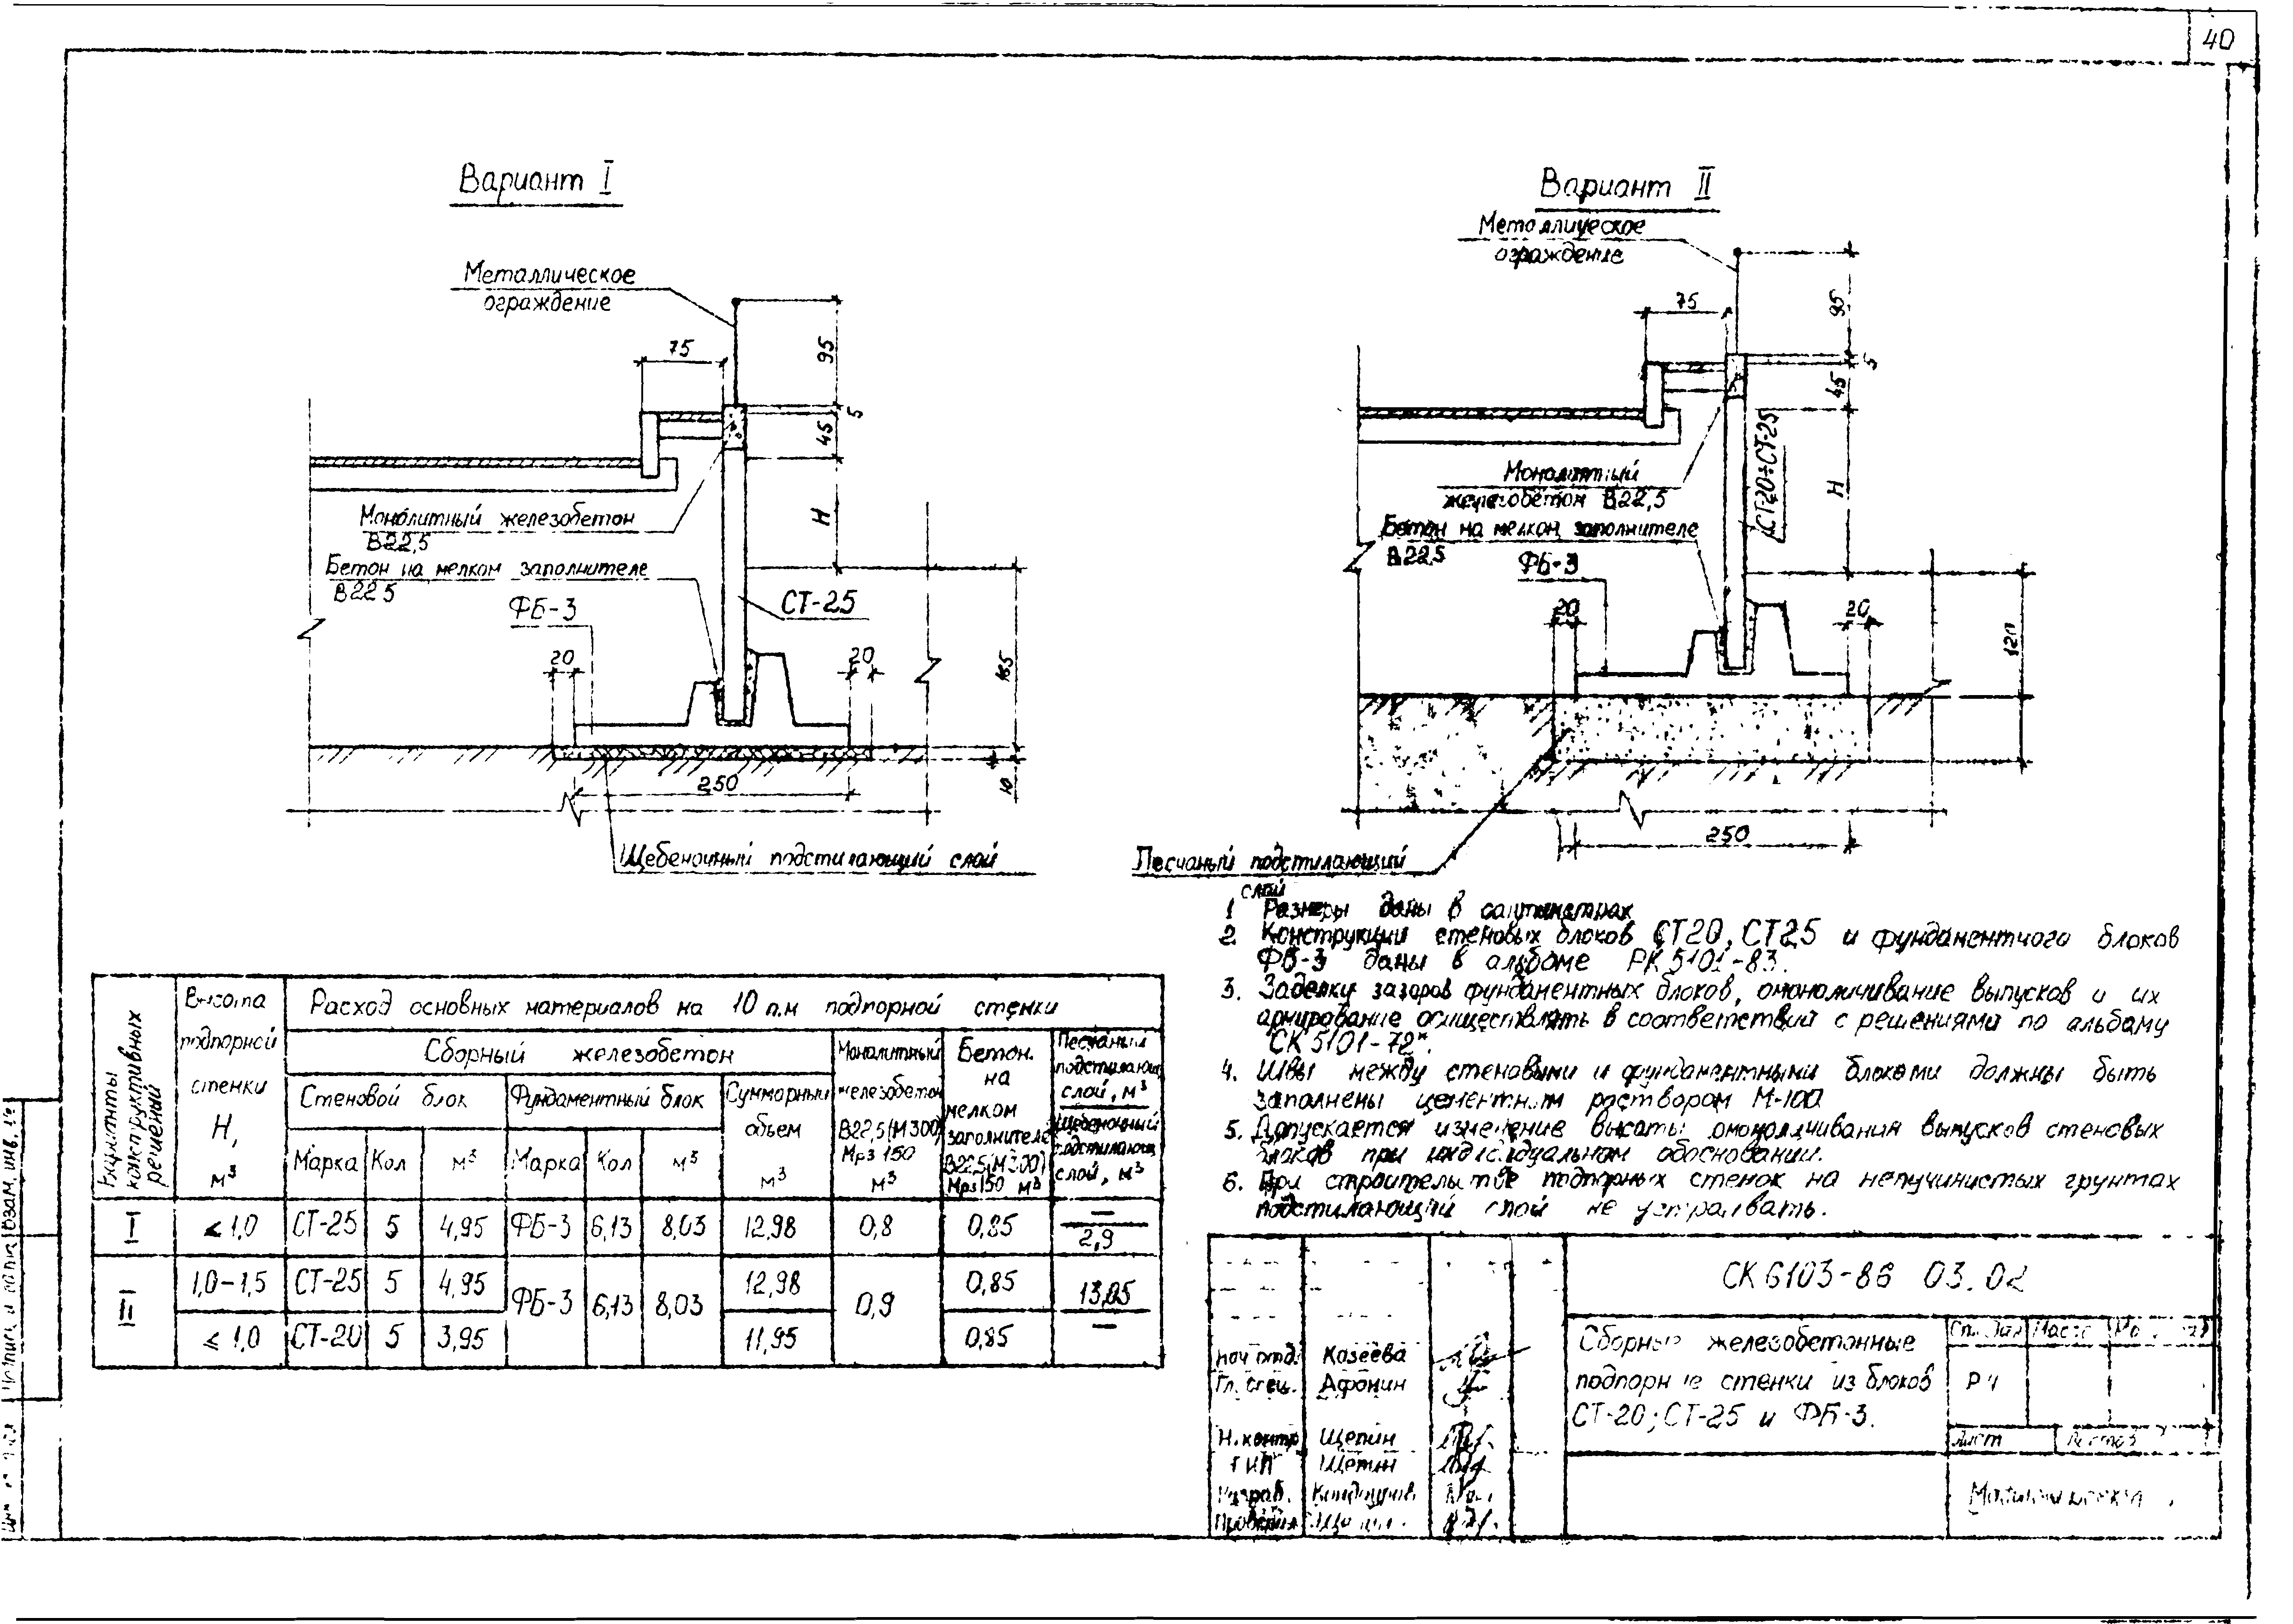 40
Вариант I
Металлическое
ограждение
75
95
5
45
Н
Монолитный железобетон
В22,5
Бетон на мелком заполнителе
В22 5
ФБ-3
СТ-25
20
20
10
250
Щебеночный подстилающий слой
Вариант II
Металлическое
ограждение
75
95
5
45
Н
СТ-20÷СТ-25
Монолитный
железобетон В22,5
Бетон на мелком заполнителе
В22,5
ФБ-3
20
20
120
250
Песчаный подстилающий
слой
1 Размеры даны в сантиметрах
2 Конструкции стеновых блоков СТ20, СТ25 и фундаментного блоков
ФБ-3 даны в альбоме РК 5101-83.
3. Заделку зазоров фундаментных блоков, омоноличивание выпусков и их
армирование осуществлять в соответствий с решениями по альбому
"СК 5101-72".
4. Швы между стеновыми и фундаментными блоками должны быть
заполнены цементным раствором М-100
5. Допускается изменение высоты омоноличивания выпусков стеновых
блоков при индивидуальном обосновании.
6. При строительстве подпорных стенок на непучинистых грунтах
подстилающий слой не устраивать.
Варианты конструктивных решений
Высота подпорной стенки Н, м³
Расход основных материалов на 10 п.м подпорной стенки
Сборный железобетон
Монолитный железобетон В22,5(М300) Мрз 150 м³
Бетон. на мелком заполнителе В22,5(М300) Мрз150 м³
Песчаный подстилающ. слой, м³
Щебеночный подстилающ. слой, м³
Стеновой блок
Фундаментный блок
Суммарный объем м³
Марка Кол м³ Марка Кол м³
I ≤ 1,0 СТ-25 5 4,95 ФБ-3 6,13 8,03 12,98 0,8 0,85 — 2,9
II 1,0-1,5 СТ-25 5 4,95 ФБ-3 6,13 8,03 12,98 0,9 0,85 13,05 —
≤ 1,0 СТ-20 5 3,95 11,95 0,85
СК 6103-86 03.02
Сборные железобетонные
подпорные стенки из блоков
СТ-20; СТ-25 и ФБ-3.
Масса
РЧ
Лист
Листов
Нач отд. Казеева
Гл. спец. Афонин
Н. контр Щепин
ГИП Щепин
Разраб.
Проверил
Взам. инв. №